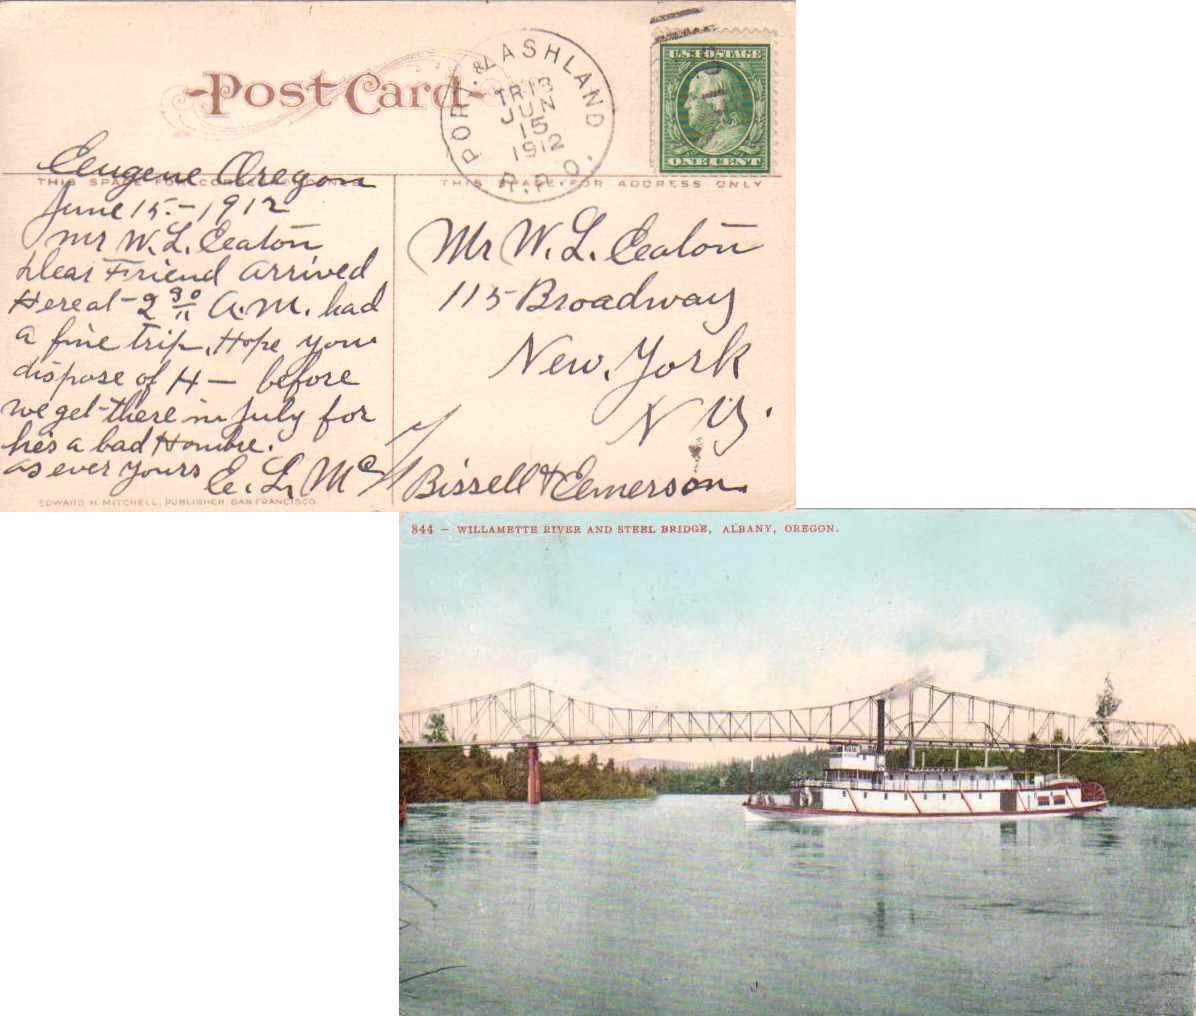 Post Card
PORT. & ASHLAND
TR.18
JUN
15
1912
R.P.O.
U.S. POSTAGE
ONE CENT
THIS SPACE FOR CORRESPONDENCE
THIS SPACE FOR ADDRESS ONLY
Eeugene Oregon
June 15.-1912
Mr W. L. Eeaton
Dear Friend arrived
Here at 2 30 A.M. had
a fine trip. Hope you
dispose of H— before
we get there in July for
he's a bad Hombre.
as ever yours E. L. Mc
EDWARD H. MITCHELL, PUBLISHER, SAN FRANCISCO.
Mr W. L. Eeaton
115 Broadway
New York
N Y.
Bissell & Eemerson.
844 – WILLAMETTE RIVER AND STEEL BRIDGE, ALBANY, OREGON.